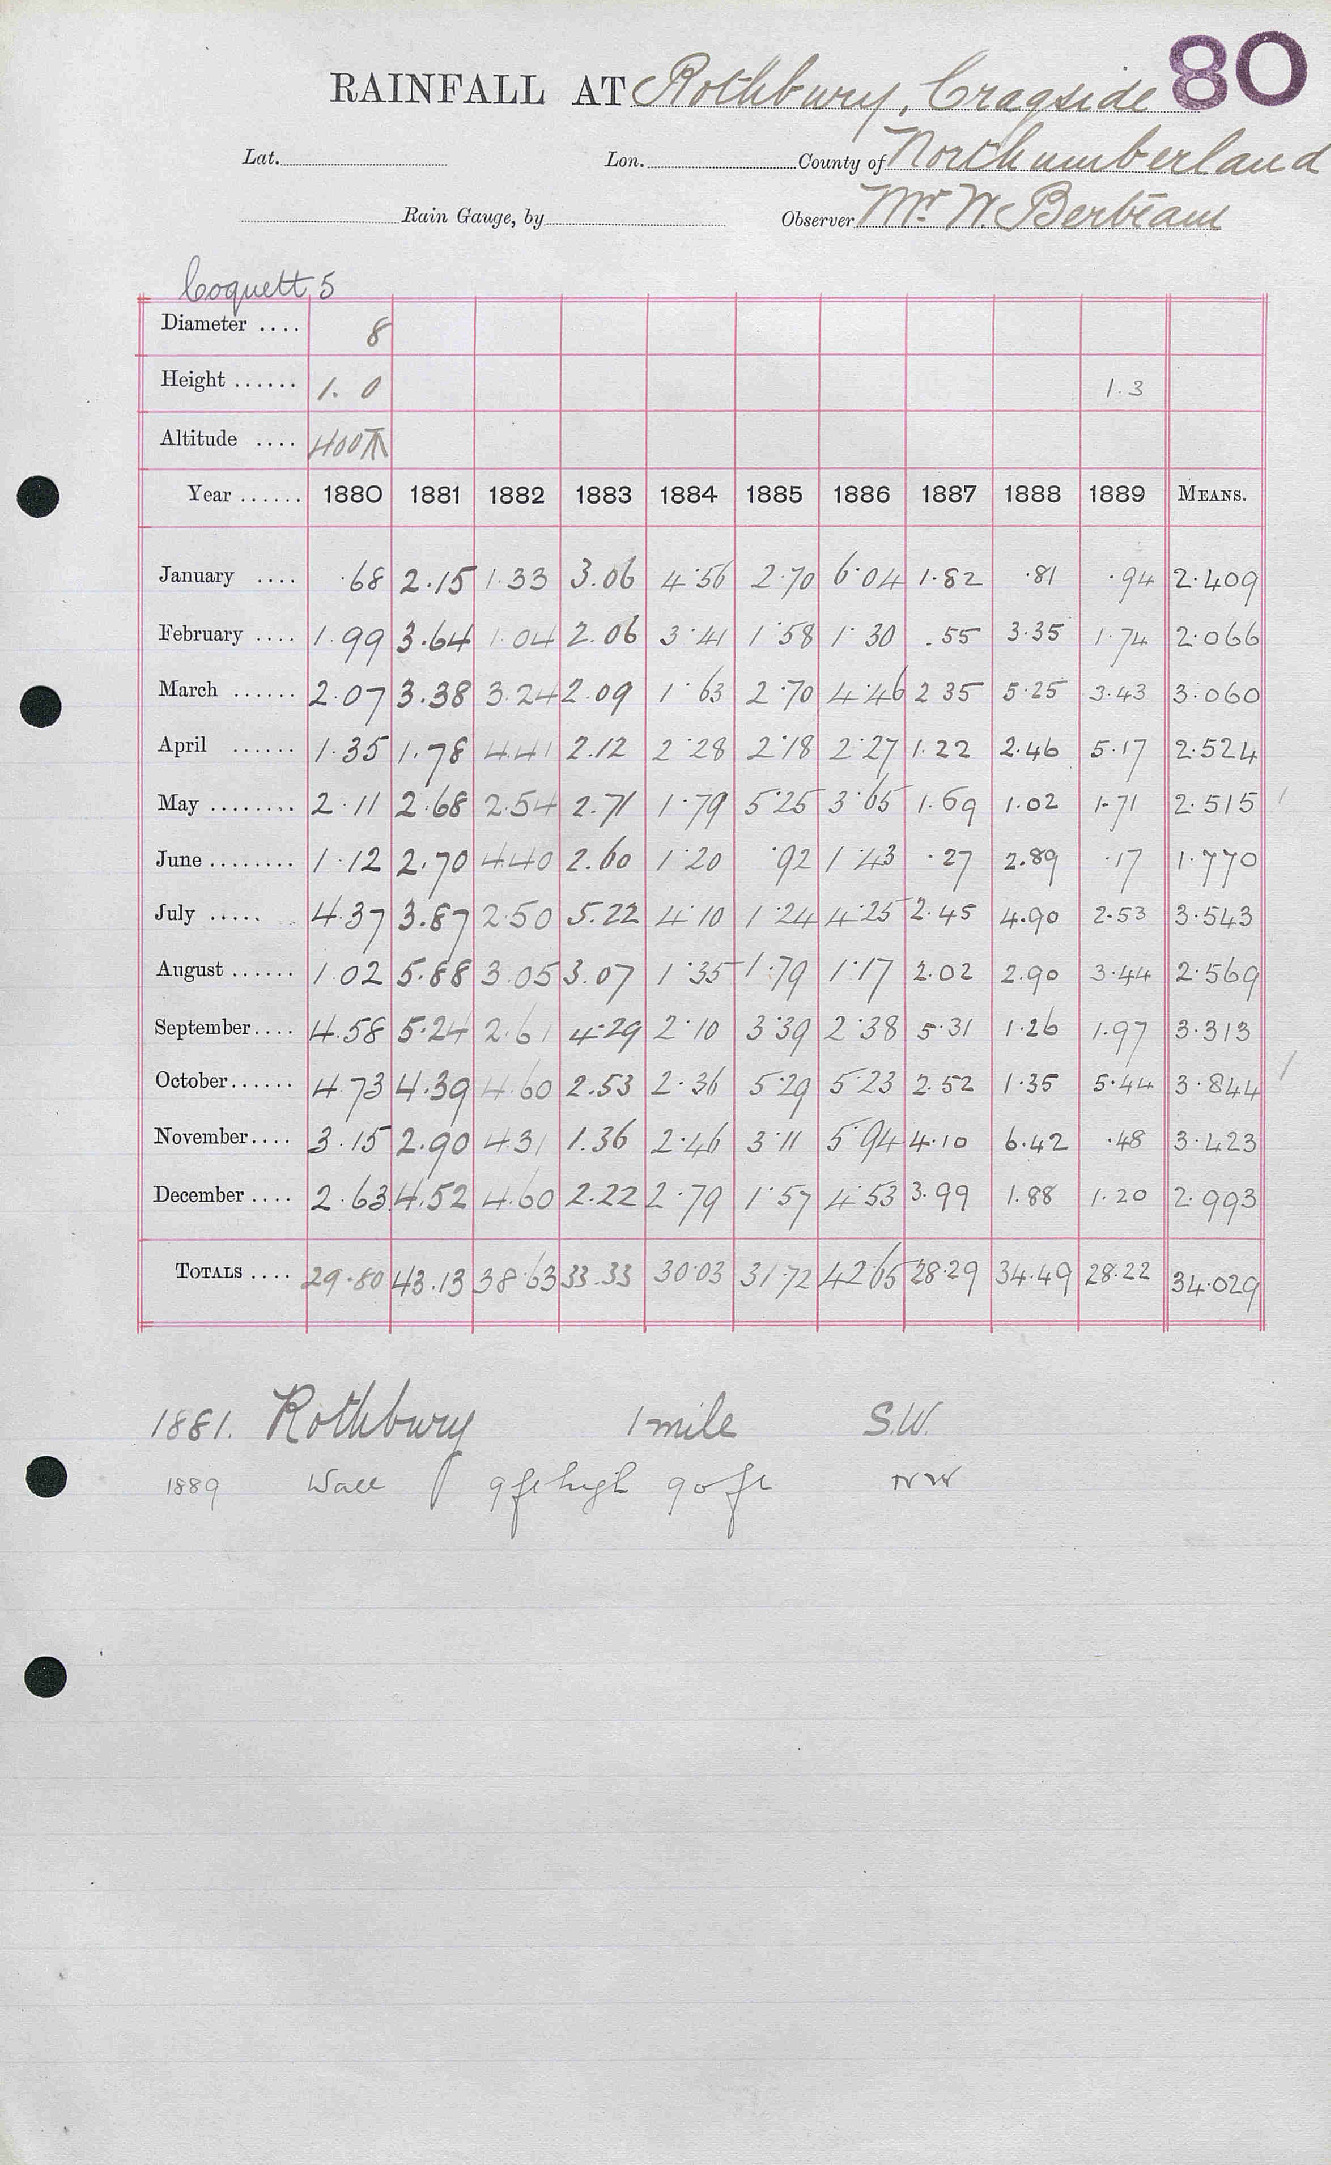 80
RAINFALL AT Rothbury, Cragside
Lat. Lon. County of Northumberland
Rain Gauge, by Observer Mr. W. Bertram
Coquett 5
Diameter .... 8
Height ...... 1. 0 1.3
Altitude .... 400
Year ...... 1880 1881 1882 1883 1884 1885 1886 1887 1888 1889 MEANS.
January .... .68 2.15 1.33 3.06 4.56 2.70 6.04 1.82 .81 .94 2.409
February .... 1.99 3.64 1.04 2.06 3.41 1.58 1.30 .55 3.35 1.74 2.066
March ...... 2.07 3.38 3.24 2.09 1.63 2.70 4.46 2.35 5.25 3.43 3.060
April ...... 1.35 1.78 4.41 2.12 2.28 2.18 2.27 1.22 2.46 5.17 2.524
May ........ 2.11 2.68 2.54 2.71 1.79 5.25 3.65 1.69 1.02 1.71 2.515
June ........ 1.12 2.70 4.40 2.60 1.20 .92 1.43 .27 2.89 .17 1.770
July ..... 4.37 3.87 2.50 5.22 4.10 1.24 4.25 2.45 4.90 2.53 3.543
August ...... 1.02 5.88 3.05 3.07 1.35 1.79 1.17 2.02 2.90 3.44 2.569
September.... 4.58 5.24 2.61 4.29 2.10 3.39 2.38 5.31 1.26 1.97 3.313
October...... 4.73 4.39 4.60 2.53 2.36 5.29 5.23 2.52 1.35 5.44 3.844
November.... 3.15 2.90 4.31 1.36 2.46 3.11 5.94 4.10 6.42 .48 3.423
December .... 2.63 4.52 4.60 2.22 2.79 1.57 4.53 3.99 1.88 1.20 2.993
TOTALS .... 29.80 43.13 38.63 33.33 30.03 31.72 42.65 28.29 34.49 28.22 34.029
1881. Rothbury 1 mile S.W.
1889 Wall 9 ft high 90 ft NW